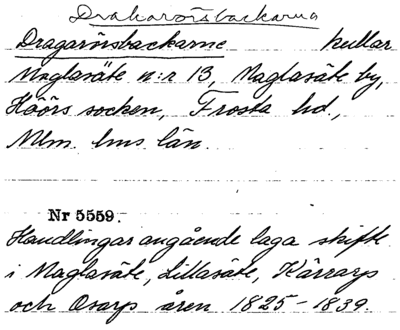 Drakarörsbackarna
Dragarörsbackarne kullar
Maglasäte n:r 13, Maglasäte by,
Höörs socken, Frosta hd.,
Mlm. hus län.
Nr 5559.
Handlingar angående laga skifte
i Maglasäte, Lillasäte, Kärrarp
och Osarp åren 1825-1839.